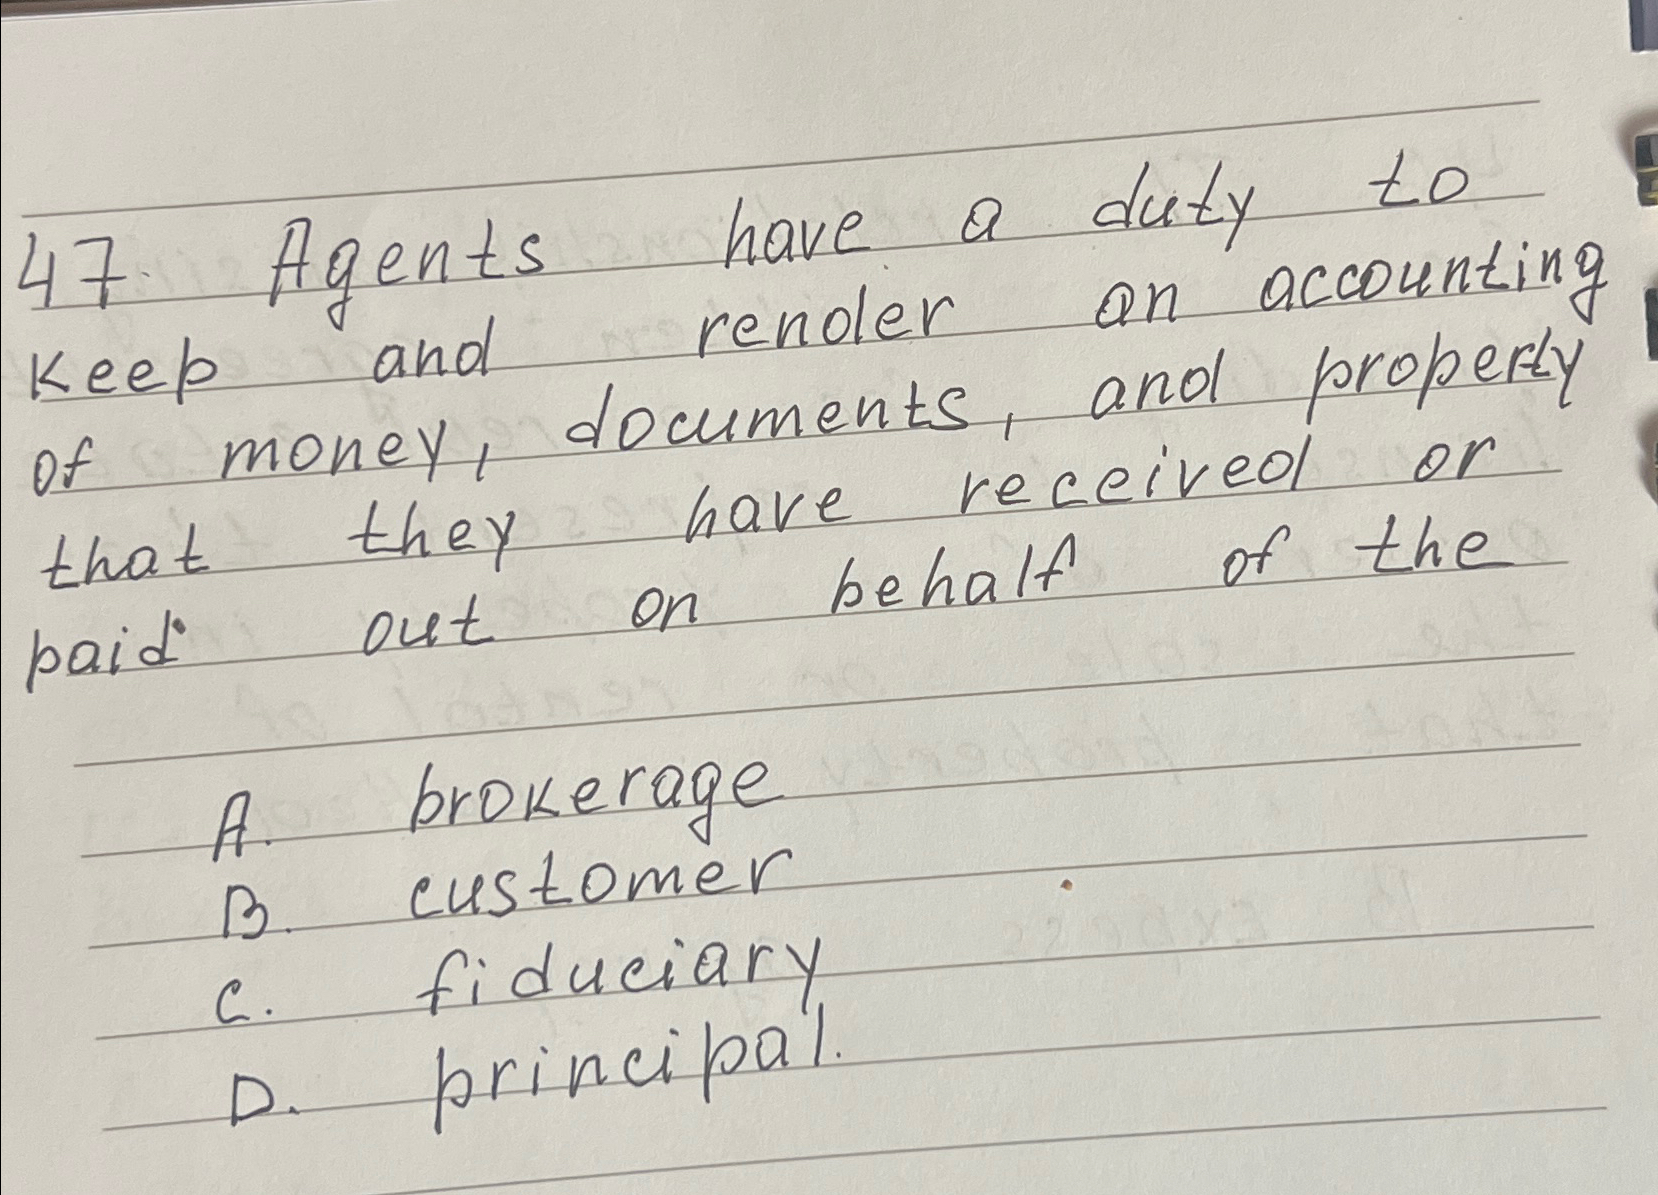 47. Agents have a duty to
keep and render an accounting
of money, documents, and property
that they have received or
paid out on behalf of the
A. brokerage
B. customer
C. fiduciary
D. principal.